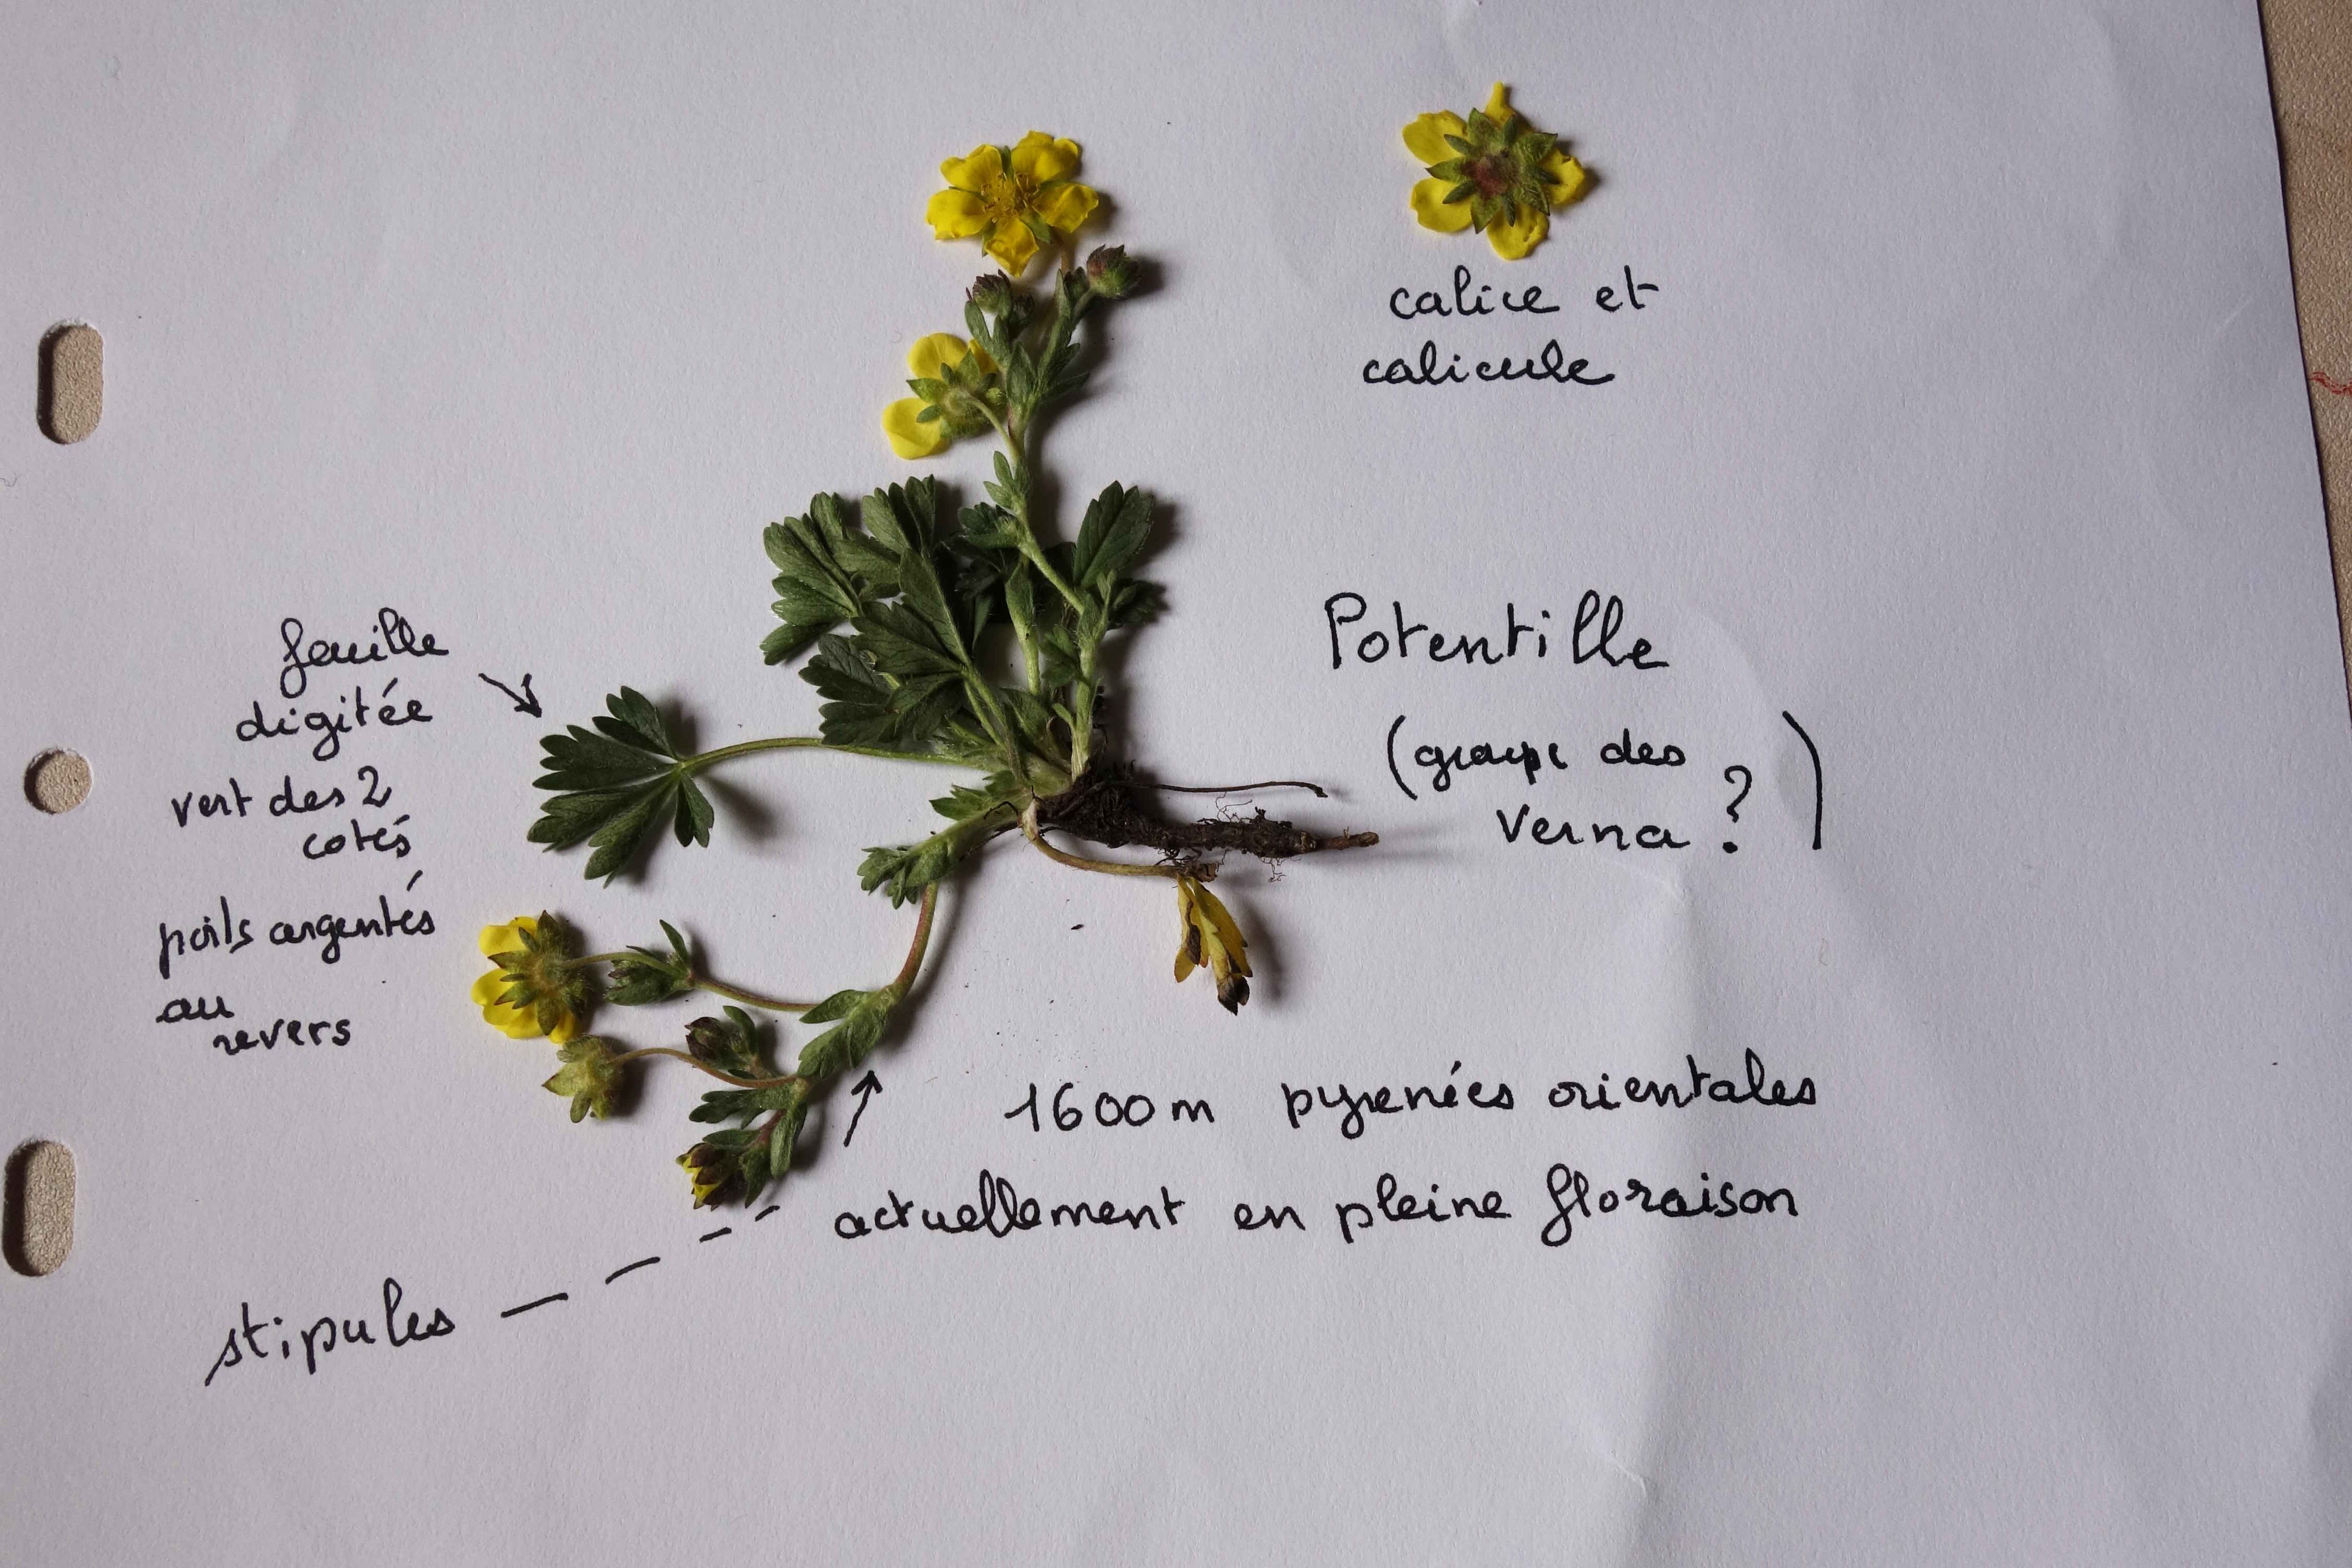 calice et
calicule
Potentille
(groupe des
verna ?)
feuille
digitée
vert des 2
cotés
poils argentés
au
revers
1600m pyrenées orientales
actuellement en pleine floraison
stipules